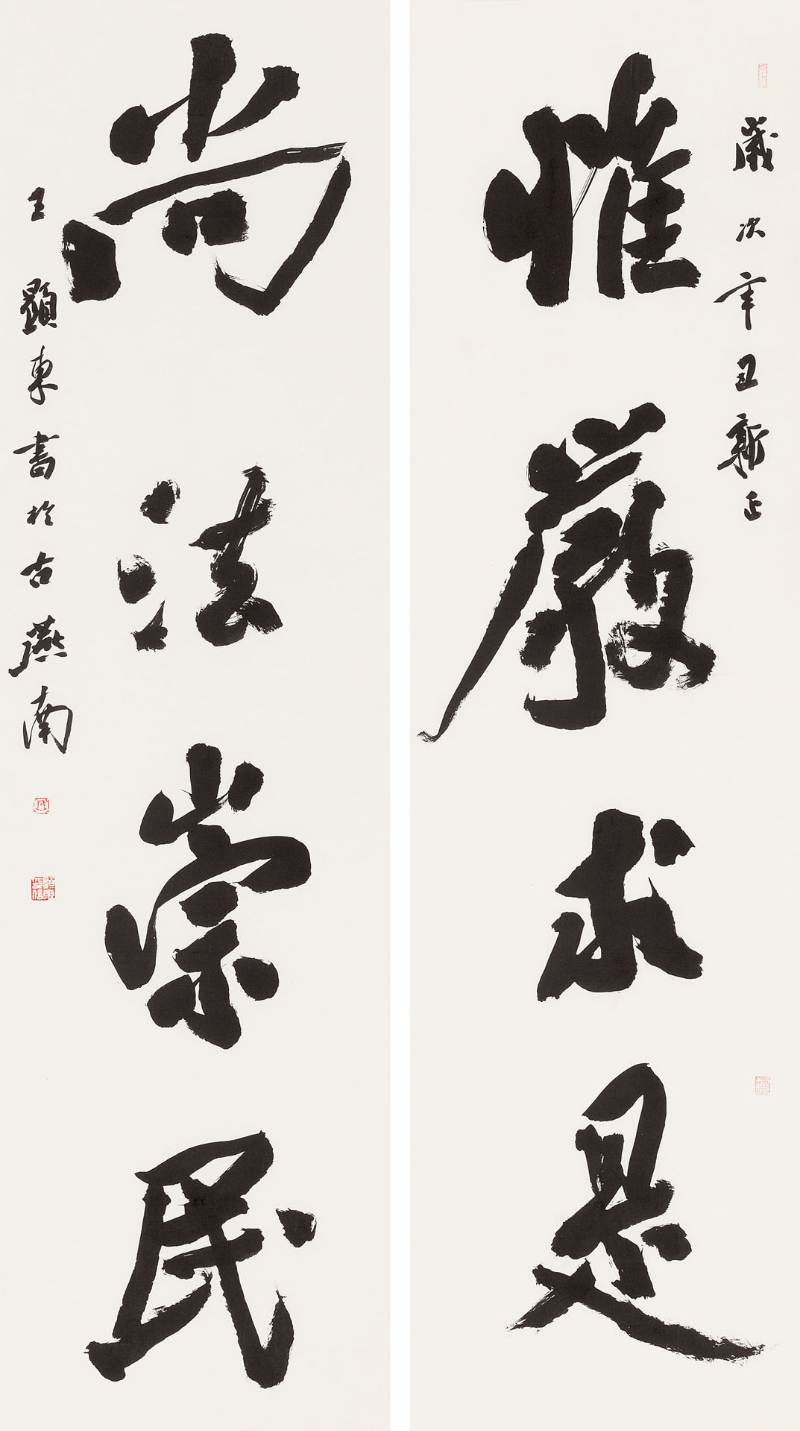 歲次辛丑新正
惟嚴求是
尚法崇民
王顯東書於古燕南